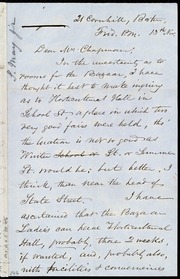 21 Cornhill, Boston,
Frid. P.M. 13th
Dear Mrs Chapman:
In the uncertainty as to
rooms for the Bazaar, I have
thought it best to make inquiry
as to Horticultural Hall in
School St., a place in which two
very good fairs were held, tho'
the location is not so good as
Winter School St. or Summer
St. would be; but better, I
think, than near the head of
State Street. I have
ascertained that the Bazaar
Ladies can hear Horticultural
Hall, probably, three weeks,
if wanted, and, probably, also,
with facilities & conveniences
S. May Jr.